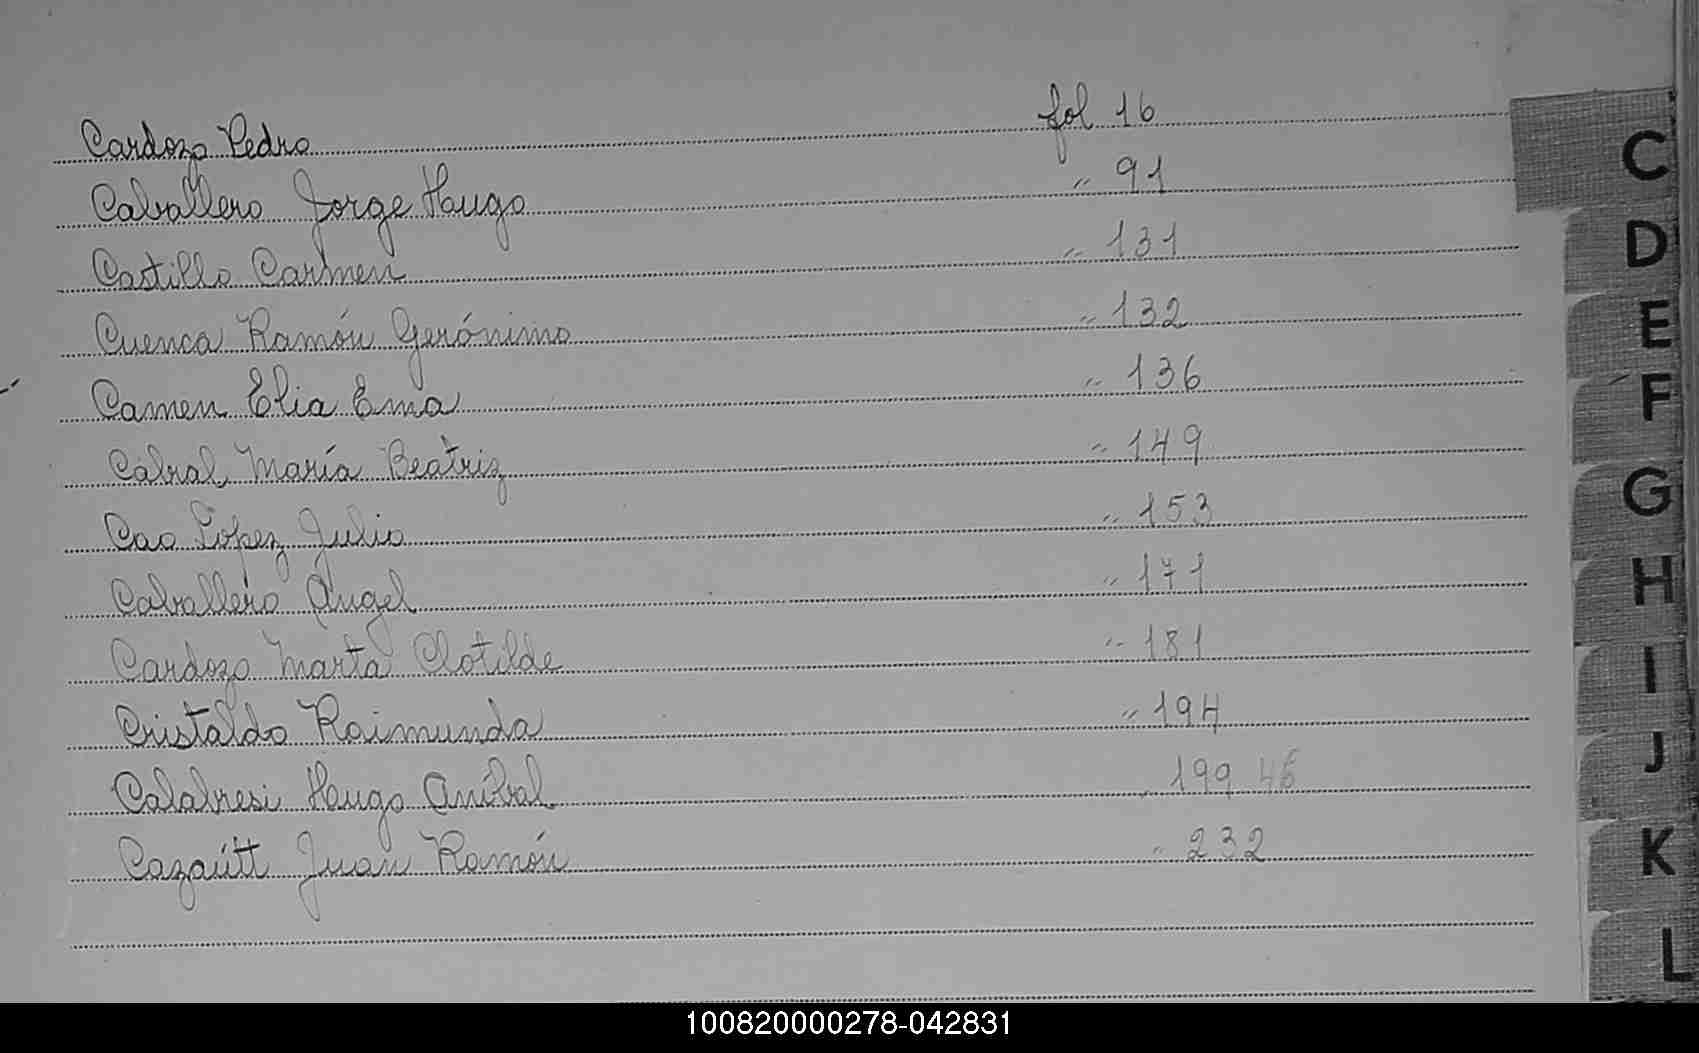 Cardozo Pedro fol 16
Caballero Jorge Hugo " 91
Castillo Carmen " 131
Cuenca Ramón Gerónimo " 132
Camen Elia Ema " 136
Cabral María Beatriz " 149
Cao López Julio " 153
Caballero Angel " 171
Cardozo Marta Clotilde " 181
Cristaldo Raimunda " 194
Calabresi Hugo Aníbal " 199
Cazaútt Juan Ramón " 232
C
D
E
F
G
H
I
J
K
L
100820000278-042831